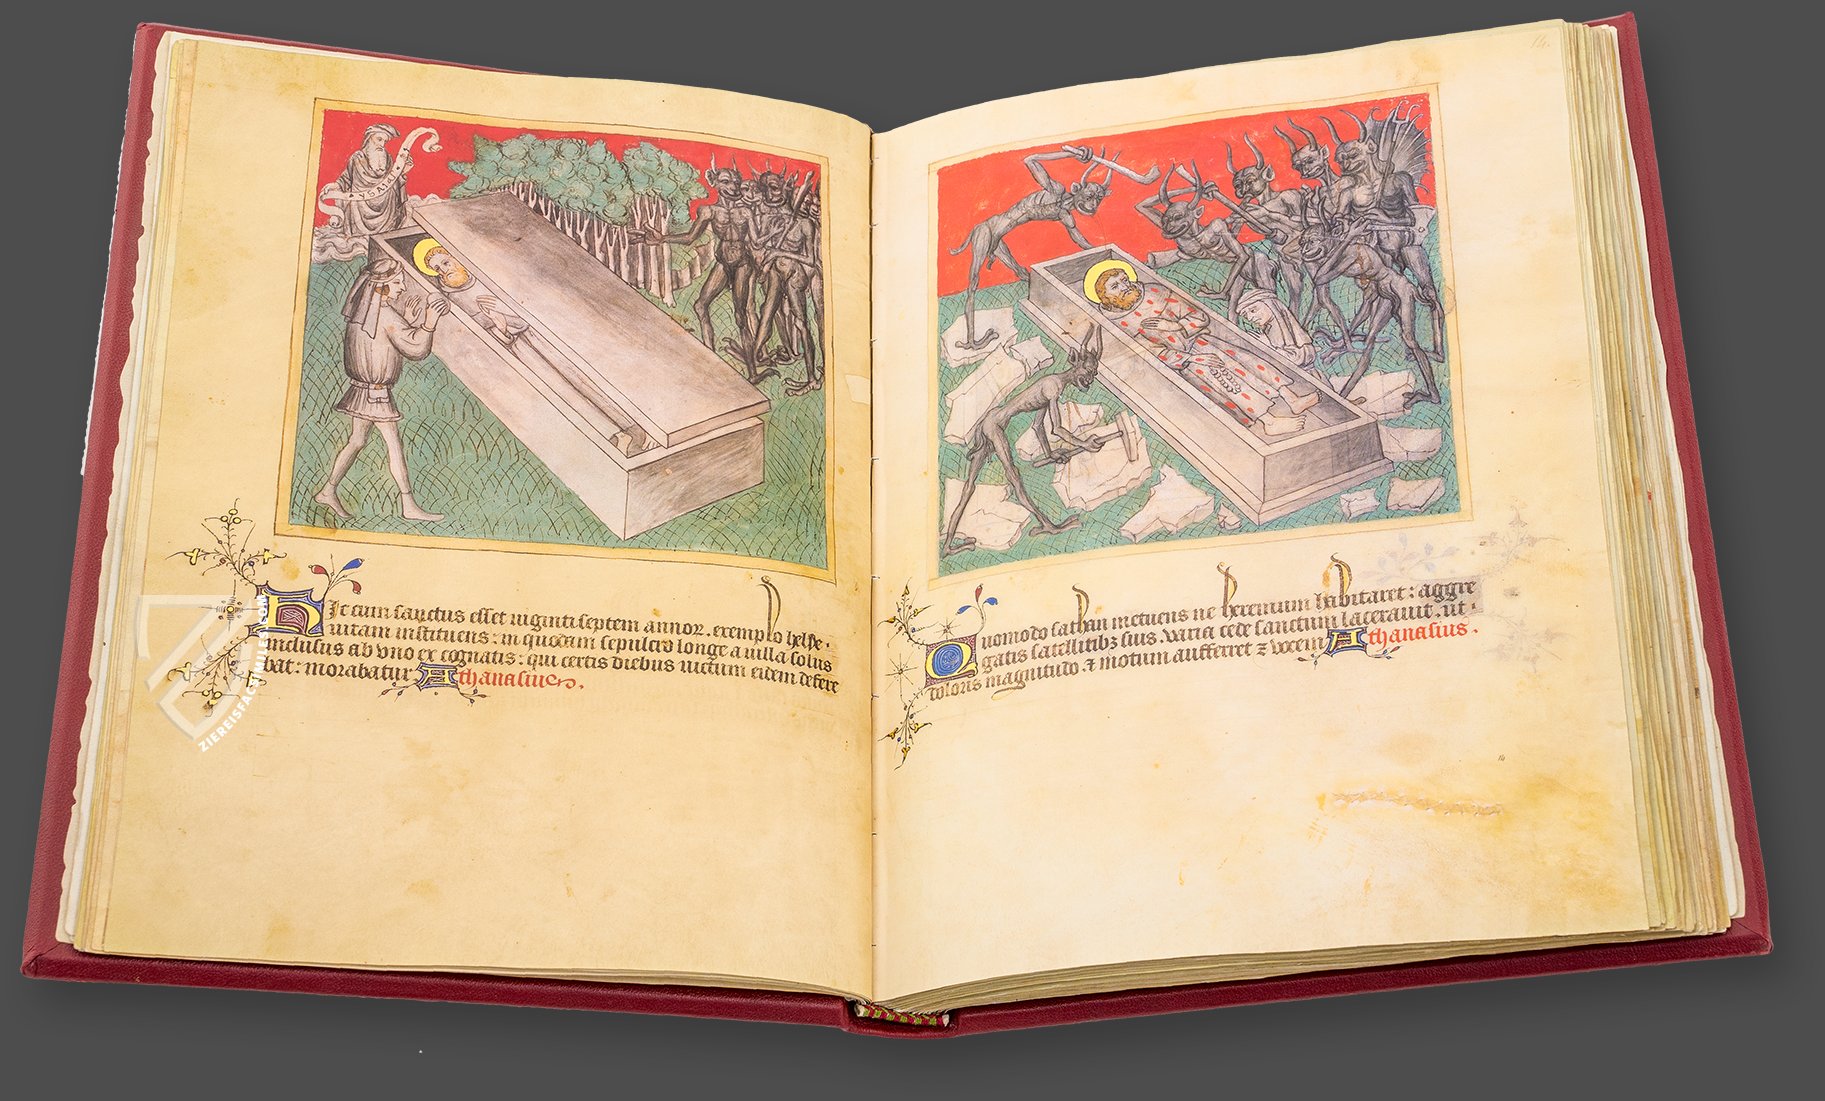 Hic cum sanctus esset viginti septem annor. exemplo helye.
vitam instituens: in quodam sepulcro longe a villa solus
inclusus ab vno ex cognatis: qui certis diebus victum eidem defere
bat: morabatur Athanasius.
14.
Quomodo sathan metuens ne heremum habitaret: aggre
gatis satellitibz suis varia cede sanctum lacerauit. ut.
doloris magnitudo. z motum aufferret z vocem Athanasius.
14
ZIEREISFACSIMILES.COM